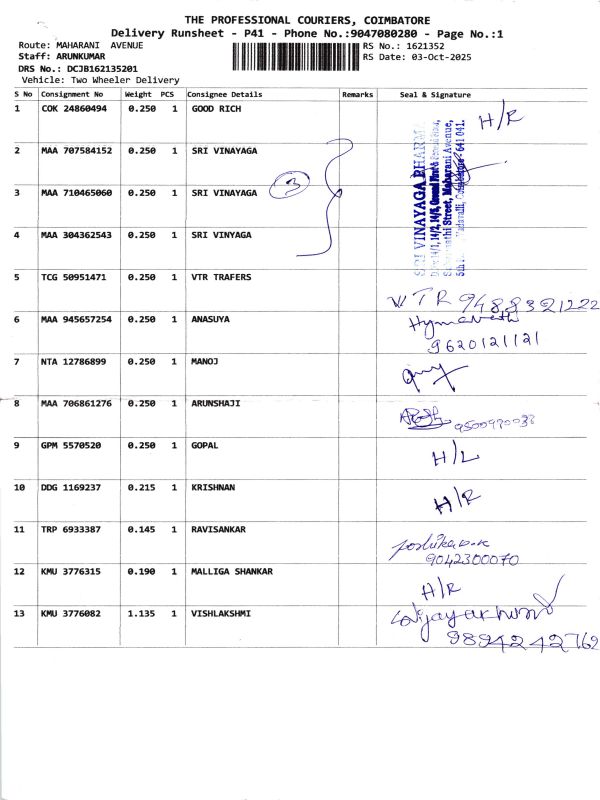 THE PROFESSIONAL COURIERS, COIMBATORE
Delivery Runsheet - P41 - Phone No.:9047080280 - Page No.:1
Route: MAHARANI AVENUE RS No.: 1621352
Staff: ARUNKUMAR RS Date: 03-Oct-2025
DRS No.: DCJB162135201
Vehicle: Two Wheeler Delivery
S No Consignment No Weight PCS Consignee Details Remarks Seal & Signature
1 COK 24860494 0.250 1 GOOD RICH H/R
2 MAA 707584152 0.250 1 SRI VINAYAGA
3 MAA 710465060 0.250 1 SRI VINAYAGA 3
4 MAA 304362543 0.250 1 SRI VINYAGA
SRI VINAYAGA PHARMA
Street, Maharani Avenue,
641 041.
5 TCG 50951471 0.250 1 VTR TRAFERS
VTR 9488321222
6 MAA 945657254 0.250 1 ANASUYA
9620121121
7 NTA 12786899 0.250 1 MANOJ
8 MAA 706861276 0.250 1 ARUNSHAJI
9 GPM 5570520 0.250 1 GOPAL H/L
10 DDG 1169237 0.215 1 KRISHNAN H/R
11 TRP 6933387 0.145 1 RAVISANKAR
9042300070
12 KMU 3776315 0.190 1 MALLIGA SHANKAR H/R
13 KMU 3776082 1.135 1 VISHLAKSHMI
9894242762